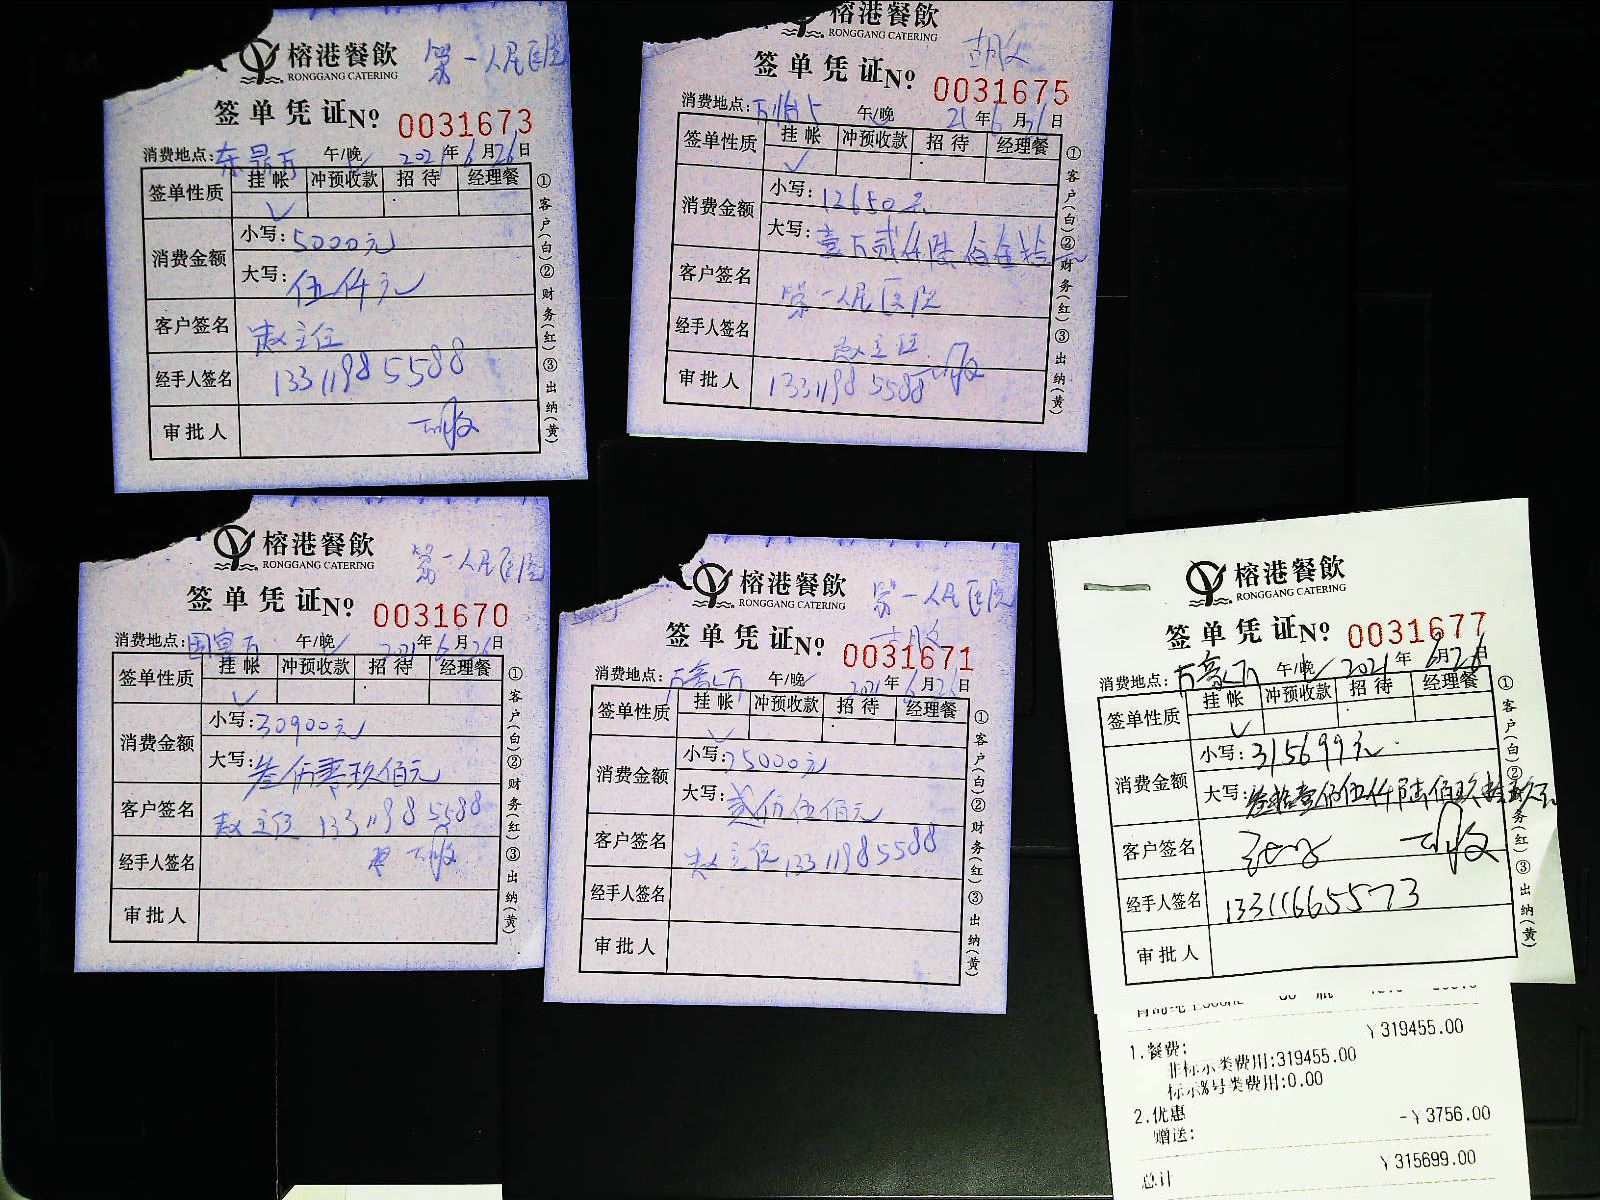 榕港餐飲
RONGGANG CATERING
第一人民医院
签单凭证No 0031673
消费地点: 午/晚 2021年6月26日
签单性质 挂帐 冲预收款 招待 经理餐
消费金额
小写: 5000元
大写: 伍仟元
客户签名 赵主任
经手人签名 13311985588
审批人
①客户(白)②财务(红)③出纳(黄)
榕港餐飲
RONGGANG CATERING
签单凭证No 0031675
消费地点: 午/晚 21年6月26日
签单性质 挂帐 冲预收款 招待 经理餐
消费金额
小写: 12650元
大写: 壹万贰仟陆佰伍拾元
客户签名 第一人民医院
经手人签名 赵主任
审批人 13311985588
①客户(白)②财务(红)③出纳(黄)
榕港餐飲
RONGGANG CATERING
第一人民医院
签单凭证No 0031670
消费地点: 国宴万 午/晚 2021年6月26日
签单性质 挂帐 冲预收款 招待 经理餐
消费金额
小写: 30900元
大写: 叁万零玖佰元
客户签名 赵主任 13311985588
经手人签名
审批人
①客户(白)②财务(红)③出纳(黄)
榕港餐飲
RONGGANG CATERING
第一人民医院
签单凭证No 0031671
消费地点: 午/晚 2021年6月26日
签单性质 挂帐 冲预收款 招待 经理餐
消费金额
小写: 25000元
大写: 贰仟伍佰元
客户签名 赵主任 13311985588
经手人签名
审批人
①客户(白)②财务(红)③出纳(黄)
榕港餐飲
RONGGANG CATERING
签单凭证No 0031677
消费地点: 午/晚 2021年6月26日
签单性质 挂帐 冲预收款 招待 经理餐
消费金额
小写: 315699元
大写: 叁拾壹万伍仟陆佰玖拾玖元
客户签名
经手人签名 13311665573
审批人
①客户(白)②财务(红)③出纳(黄)
¥319455.00
1.餐费:
非标示类费用:319455.00
标示%号类费用:0.00
2.优惠 -¥3756.00
赠送:
总计 ¥315699.00